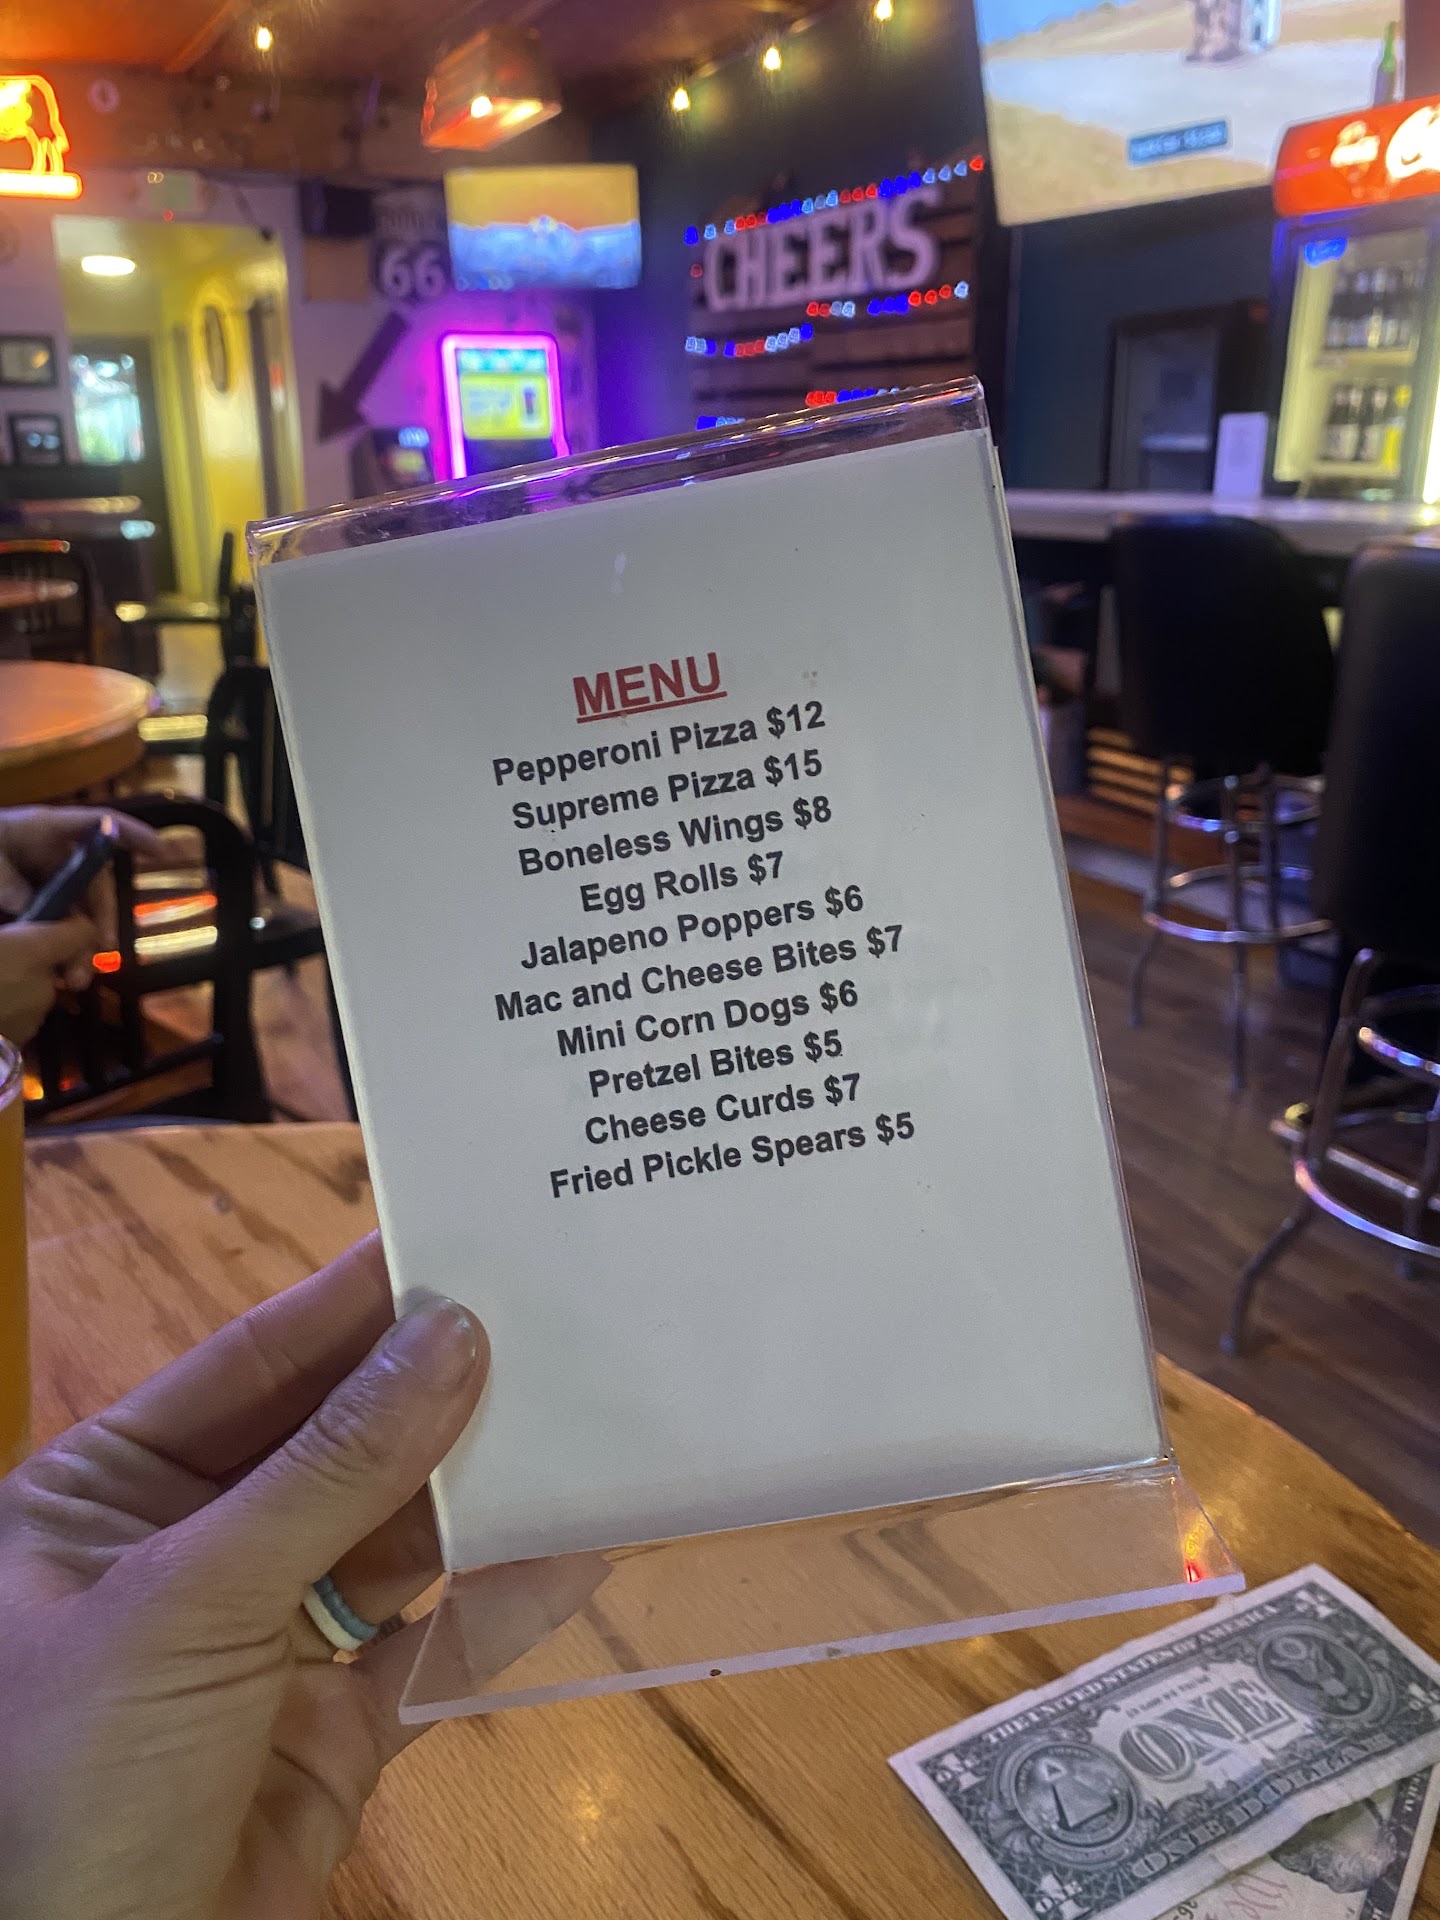 66
CHEERS
MENU
Pepperoni Pizza $12
Supreme Pizza $15
Boneless Wings $8
Egg Rolls $7
Jalapeno Poppers $6
Mac and Cheese Bites $7
Mini Corn Dogs $6
Pretzel Bites $5
Cheese Curds $7
Fried Pickle Spears $5
THE UNITED STATES OF AMERICA
ONE
ONE DOLLAR